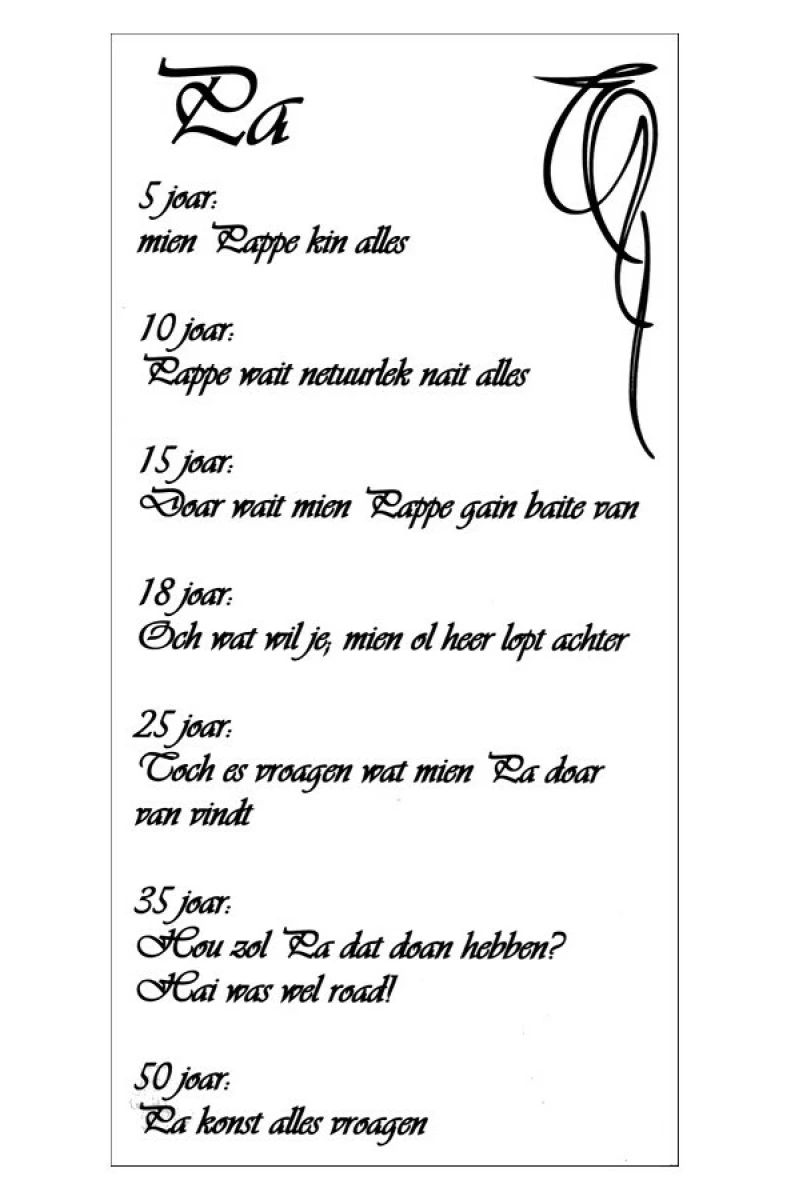 Pa
5 joar:
mien Pappe kin alles
10 joar:
Pappe wait netuurlek nait alles
15 joar:
Doar wait mien Pappe gain baite van
18 joar:
Och wat wil je; mien ol heer lopt achter
25 joar:
Toch es vroagen wat mien Pa doar
van vindt
35 joar:
Hou zol Pa dat doan hebben?
Hai was wel road!
50 joar:
Pa konst alles vroagen